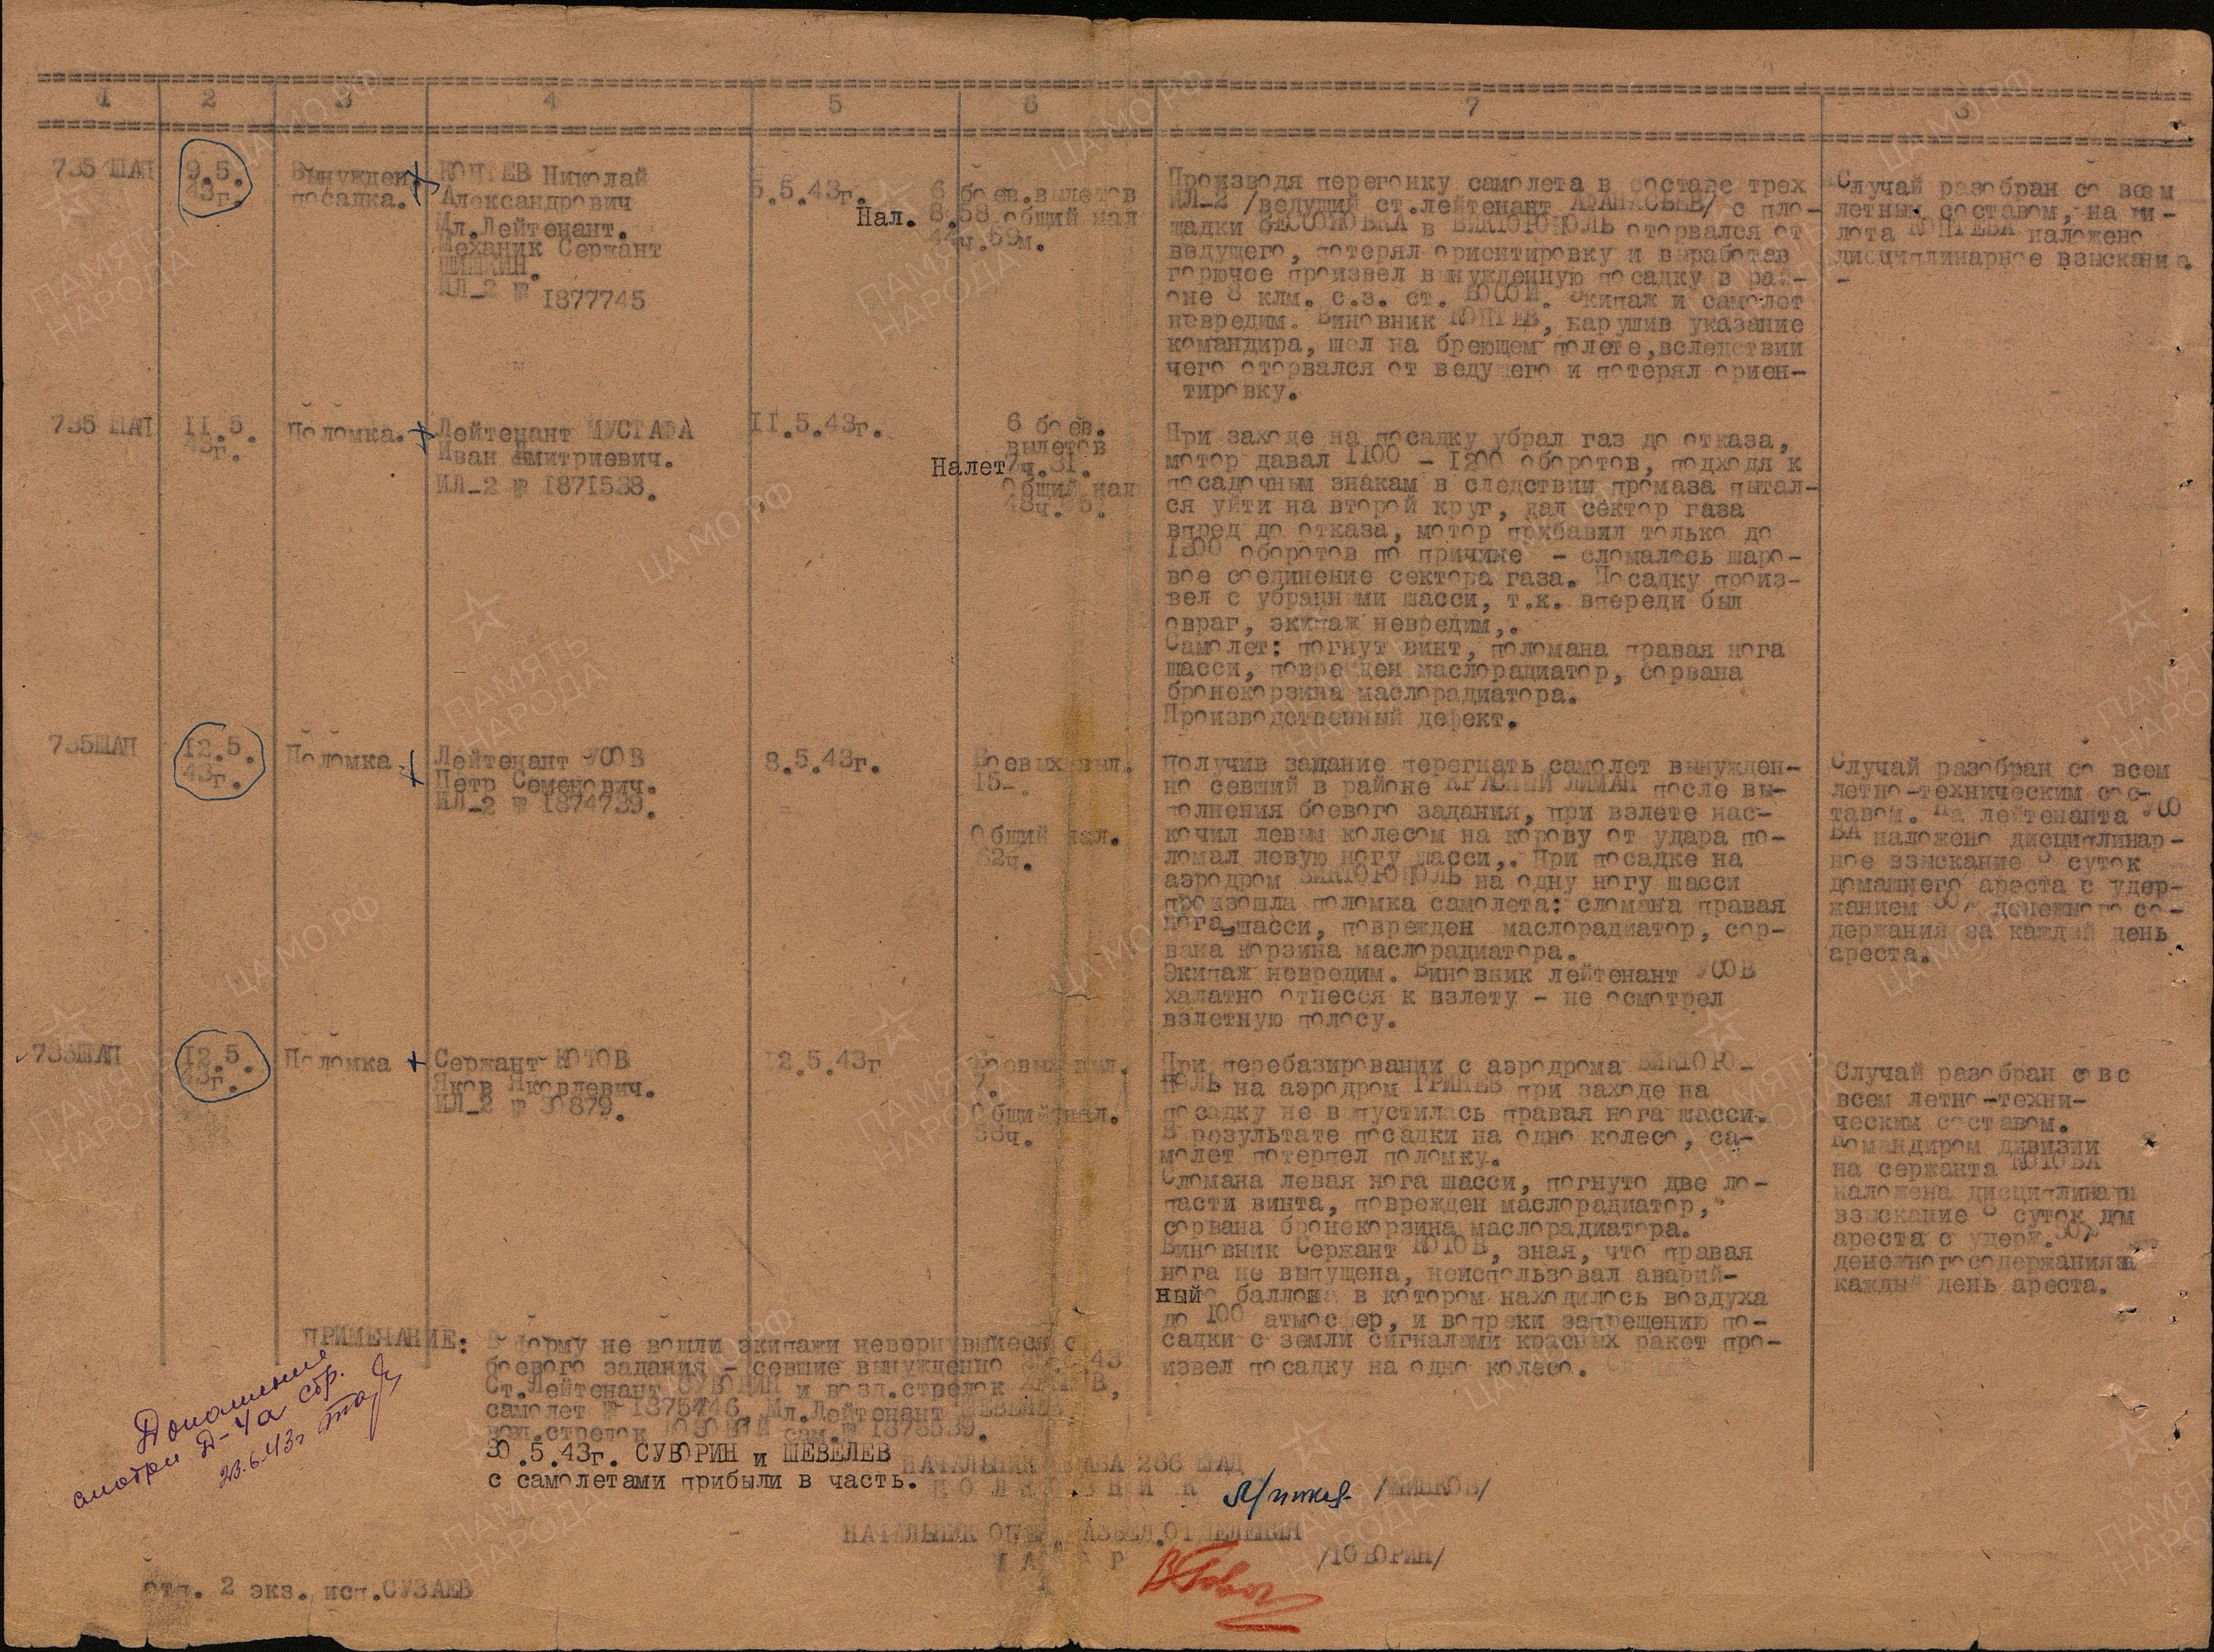 1 2 3 4 5 6 7 8
735 ШАП
9.5.
43г.
Вынужден.
посадка.
КОПТЕВ Николай
Александрович
Мл.Лейтенант.
Механик Сержант
ШИШКИН.
ИЛ_2 № 1877745
5.5.43г.
6 боев.вылетов
Нал. 8.58 общий нал
44ч.59м.
Производя перегонку самолета в составе трех
ИЛ-2 /ведущий ст.лейтенант АФАНАСЬЕВ/ с пло-
щадки БЕССОНОВКА в ВИКТОРОПОЛЬ оторвался от
ведущего, потерял ориентировку и выработав
горючее произвел вынужденную посадку в рай-
оне 8 клм. с.з. ст. Экипаж и самолет
невредим. Виновник КОПТЕВ, нарушив указание
командира, шел на бреющем полете,вследствии
чего оторвался от ведущего и потерял ориен-
тировку.
Случай разобран со всем
летным составом, на пи-
лота КОПТЕВА наложено
дисциплинарное взыскание.
-
735 ШАП
11.5.
43г.
Поломка.
Лейтенант МУСТАФА
Иван Дмитриевич.
ИЛ_2 № 1871538.
11.5.43г.
6 боев.
вылетов
Налет 7ч.31.
Общий нал
48ч. 5.
При заходе на посадку убрал газ до отказа,
мотор давал 1100 - 1200 оборотов, подходя к
посадочным знакам в следствии промаза пытал-
ся уйти на второй круг, дал сектор газа
впред до отказа, мотор прибавил только до
1300 оборотов по причине - сломалось шаро-
вое соединение сектора газа. Посадку произ-
вел с убранными шасси, т.к. впереди был
овраг, экипаж невредим,.
Самолет: погнут винт, поломана правая нога
шасси, поврежден маслорадиатор, сорвана
бронекорзина маслорадиатора.
Производственный дефект.
735ШАП
12.5.
43г.
Поломка
Лейтенант УСОВ
Петр Семенович.
ИЛ_2 № 1874739.
8.5.43г.
Боевых выл.
15-.
Общий нал.
62ч.
Получив задание перегнать самолет вынужден-
но севший в районе КРАСНЫЙ ЛИМАН после вы-
полнения боевого задания, при взлете нас-
кочил левым колесом на корову от удара по-
ломал левую ногу шасси,. При посадке на
аэродром ВИКТОРОПОЛЬ на одну ногу шасси
произошла поломка самолета: сломана правая
нога шасси, поврежден маслорадиатор, сор-
вана корзина маслорадиатора.
Экипаж невредим. Виновник лейтенант УСОВ
халатно отнесся к взлету - не осмотрел
взлетную полосу.
Случай разобран со всем
летно-техническим сос-
тавом. На лейтенанта УСО
ВА наложено дисциплинар-
ное взыскание суток
домашнего ареста с удер-
жанием 50% денежного со-
держания за каждый день
ареста.
735ШАП
12.5.
43г.
Поломка
Сержант КОТОВ
Яков Яковлевич.
ИЛ_2 № 30879.
12.5.43г
Боевых выл.
7.
Общий нал.
53ч.
При перебазировании с аэродрома ВИКТОРО-
ПОЛЬ на аэродром ГРИНЕВ при заходе на
посадку не выпустилась правая нога шасси.
В результате посадки на одно колесо, са-
молет потерпел поломку.
Сломана левая нога шасси, погнуто две ло-
пасти винта, поврежден маслорадиатор,
сорвана бронекорзина маслорадиатора.
Виновник Сержант КОТОВ, зная, что правая
нога не выпущена, неиспользовал аварий-
ный баллона в котором находилось воздуха
до 100 атмосфер, и вопреки запрещению по-
садки с земли сигналами красных ракет про-
извел посадку на одно колесо.
Случай разобран совс
всем летно-техни-
ческим составом.
Командиром дивизии
на сержанта КОТОВА
наложена дисциплинарн
взыскание суток дом
ареста с удерж.50%
денежногосодержанияза
каждый день ареста.
ПРИМЕЧАНИЕ: В форму не вошли экипажи невернувшиеся с
боевого задания - севшие вынужденно 43
Ст.Лейтенант СУВОРИН и возд.стрелок
самолет № 1875446, Мл.Лейтенант ШЕВЕЛЕВ
возд.стрелок сам.№ 1878539.
30.5.43г. СУВОРИН и ШЕВЕЛЕВ
с самолетами прибыли в часть.
Дополнение
смотри Д-4а стр.
23.6.43г
НАЧАЛЬНИК ШТАБА 266 ШАД
ПОЛКОВНИК /ШИШКОВ/
НАЧАЛЬНИК ОПЕР. РАЗВЕД.ОТДЕЛЕНИЯ
МАЙОР /ГОВОРИН/
отп. 2 экз. исп.СУЗАЕВ
ПАМЯТЬ НАРОДА
ЦА МО РФ